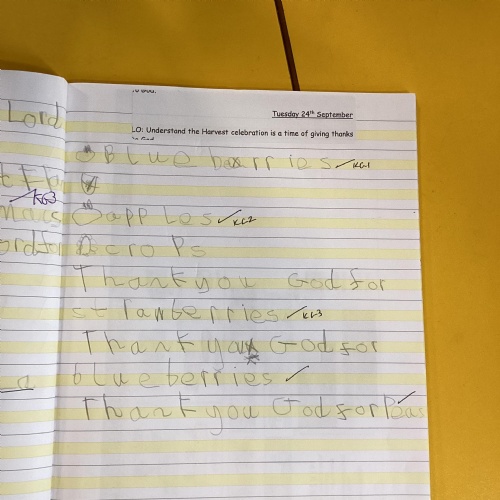 Tuesday 24th September
LO: Understand the Harvest celebration is a time of giving thanks
to God.
Lord
Blue berries KG1
KG3
apples KG2
crops
Thank you God for
strawberries KG3
Thank you God for
blueberries
Thank you God for Peas